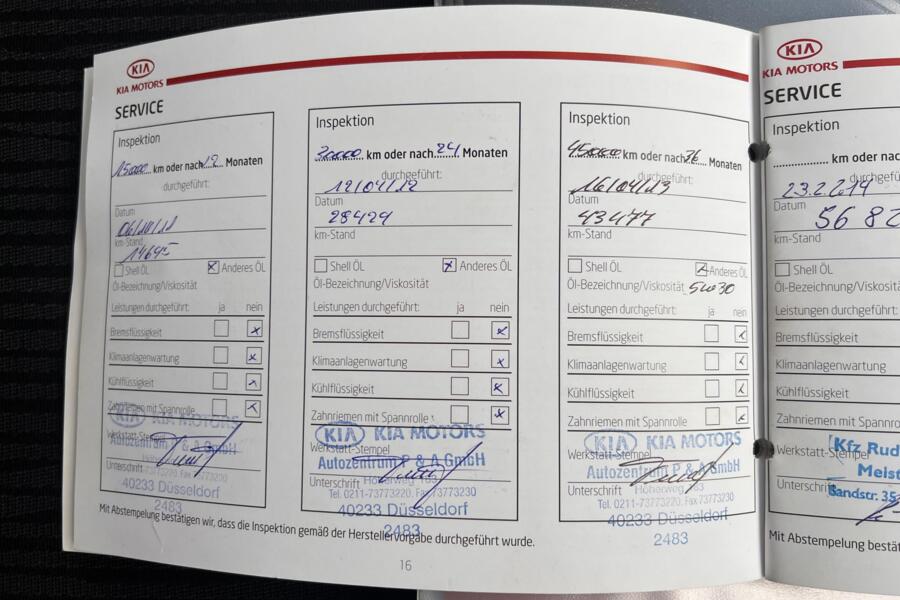 KIA
KIA MOTORS
SERVICE
Inspektion
15000 km oder nach 12 Monaten
durchgeführt:
Datum
km-Stand
14645
Shell ÖL Anderes ÖL
Öl-Bezeichnung/Viskosität
Leistungen durchgeführt: ja nein
Bremsflüssigkeit
Klimaanlagenwartung
Kühlflüssigkeit
Zahnriemen mit Spannrolle
KIA KIA MOTORS
Werkstatt-Stempel
Autozentrum P & A GmbH
Unterschrift
40233 Düsseldorf
2483
Inspektion
30000 km oder nach 24 Monaten
durchgeführt:
12/04/12
Datum
29424
km-Stand
Shell ÖL Anderes ÖL
Öl-Bezeichnung/Viskosität
Leistungen durchgeführt: ja nein
Bremsflüssigkeit
Klimaanlagenwartung
Kühlflüssigkeit
Zahnriemen mit Spannrolle
KIA KIA MOTORS
Werkstatt-Stempel
Autozentrum P & A GmbH
Höherweg
Unterschrift
Tel. 0211-73773220. Fax 73773230
40233 Düsseldorf
2483
Inspektion
45000 km oder nach 36 Monaten
durchgeführt:
16/04/13
Datum
43477
km-Stand
Shell ÖL Anderes ÖL
Öl-Bezeichnung/Viskosität 5W30
Leistungen durchgeführt: ja nein
Bremsflüssigkeit
Klimaanlagenwartung
Kühlflüssigkeit
Zahnriemen mit Spannrolle
KIA KIA MOTORS
Werkstatt-Stempel
Autozentrum P & A GmbH
Höherweg
Unterschrift
Tel. 0211-73773220. Fax 73773230
40233 Düsseldorf
2483
Mit Abstempelung bestätigen wir, dass die Inspektion gemäß der Herstellervorgabe durchgeführt wurde.
16
KIA
KIA MOTORS
SERVICE
Inspektion
km oder nach
durchgeführt:
23.2.2014
Datum
56 82
km-Stand
Shell ÖL
Öl-Bezeichnung/Viskosität
Leistungen durchgeführt:
Bremsflüssigkeit
Klimaanlagenwartung
Kühlflüssigkeit
Zahnriemen mit Spannrolle
Kfz Rud
Werkstatt-Stempel
Meist
Unterschrift
Bandstr. 35
Mit Abstempelung bestät